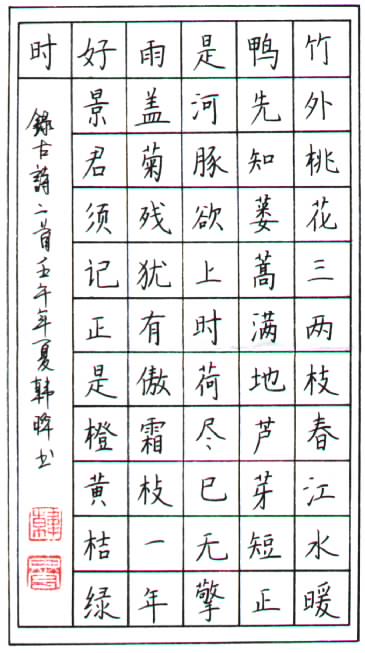 竹外桃花三两枝春江水暖
鸭先知蒌蒿满地芦芽短正
是河豚欲上时荷尽已无擎
雨盖菊残犹有傲霜枝一年
好景君须记正是橙黄桔绿
时
錄古詩二首壬午年夏韓书
韓